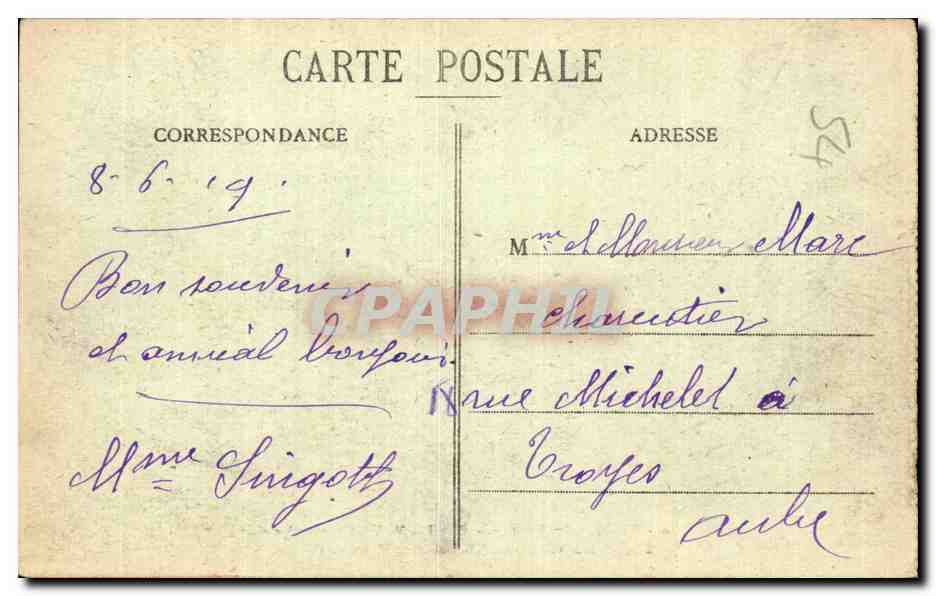 CARTE POSTALE
CORRESPONDANCE
8-6-19.
Bon souvenir
et amical bonjour.
Mme Singott
ADRESSE
54
Mme et Monsieur Marc
charcutier
18 rue Michelet à
Troyes
aube
CPAPHIL